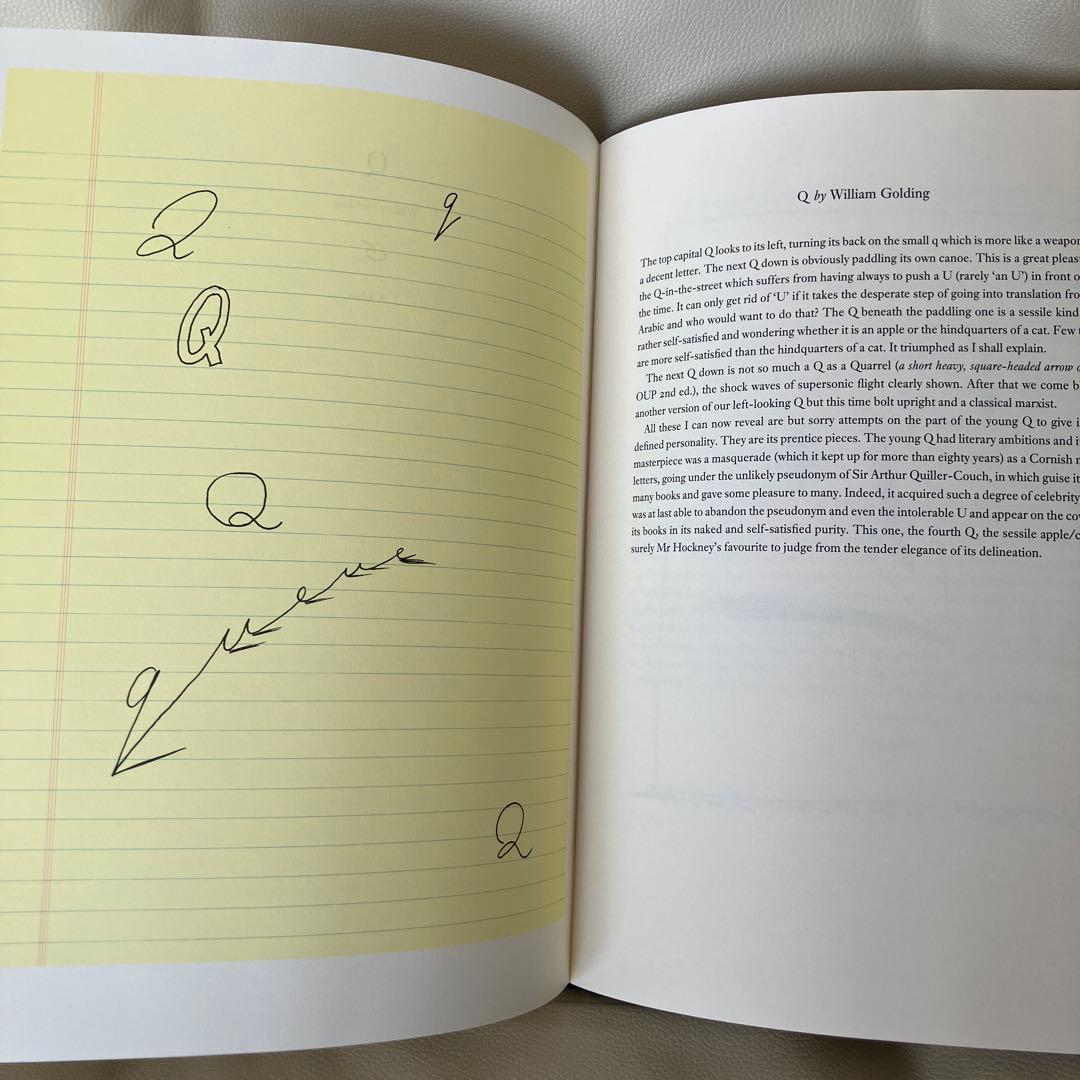 Q
q
Q
Q
queue
Q
Q by William Golding
The top capital Q looks to its left, turning its back on the small q which is more like a weapon
a decent letter. The next Q down is obviously paddling its own canoe. This is a great pleas
the Q-in-the-street which suffers from having always to push a U (rarely ‘an U’) in front o
the time. It can only get rid of ‘U’ if it takes the desperate step of going into translation fro
Arabic and who would want to do that? The Q beneath the paddling one is a sessile kind
rather self-satisfied and wondering whether it is an apple or the hindquarters of a cat. Few
are more self-satisfied than the hindquarters of a cat. It triumphed as I shall explain.
The next Q down is not so much a Q as a Quarrel (a short heavy, square-headed arrow
OUP 2nd ed.), the shock waves of supersonic flight clearly shown. After that we come b
another version of our left-looking Q but this time bolt upright and a classical marxist.
All these I can now reveal are but sorry attempts on the part of the young Q to give i
defined personality. They are its prentice pieces. The young Q had literary ambitions and i
masterpiece was a masquerade (which it kept up for more than eighty years) as a Cornish
letters, going under the unlikely pseudonym of Sir Arthur Quiller-Couch, in which guise it
many books and gave some pleasure to many. Indeed, it acquired such a degree of celebrity
was at last able to abandon the pseudonym and even the intolerable U and appear on the co
its books in its naked and self-satisfied purity. This one, the fourth Q, the sessile apple/c
surely Mr Hockney’s favourite to judge from the tender elegance of its delineation.